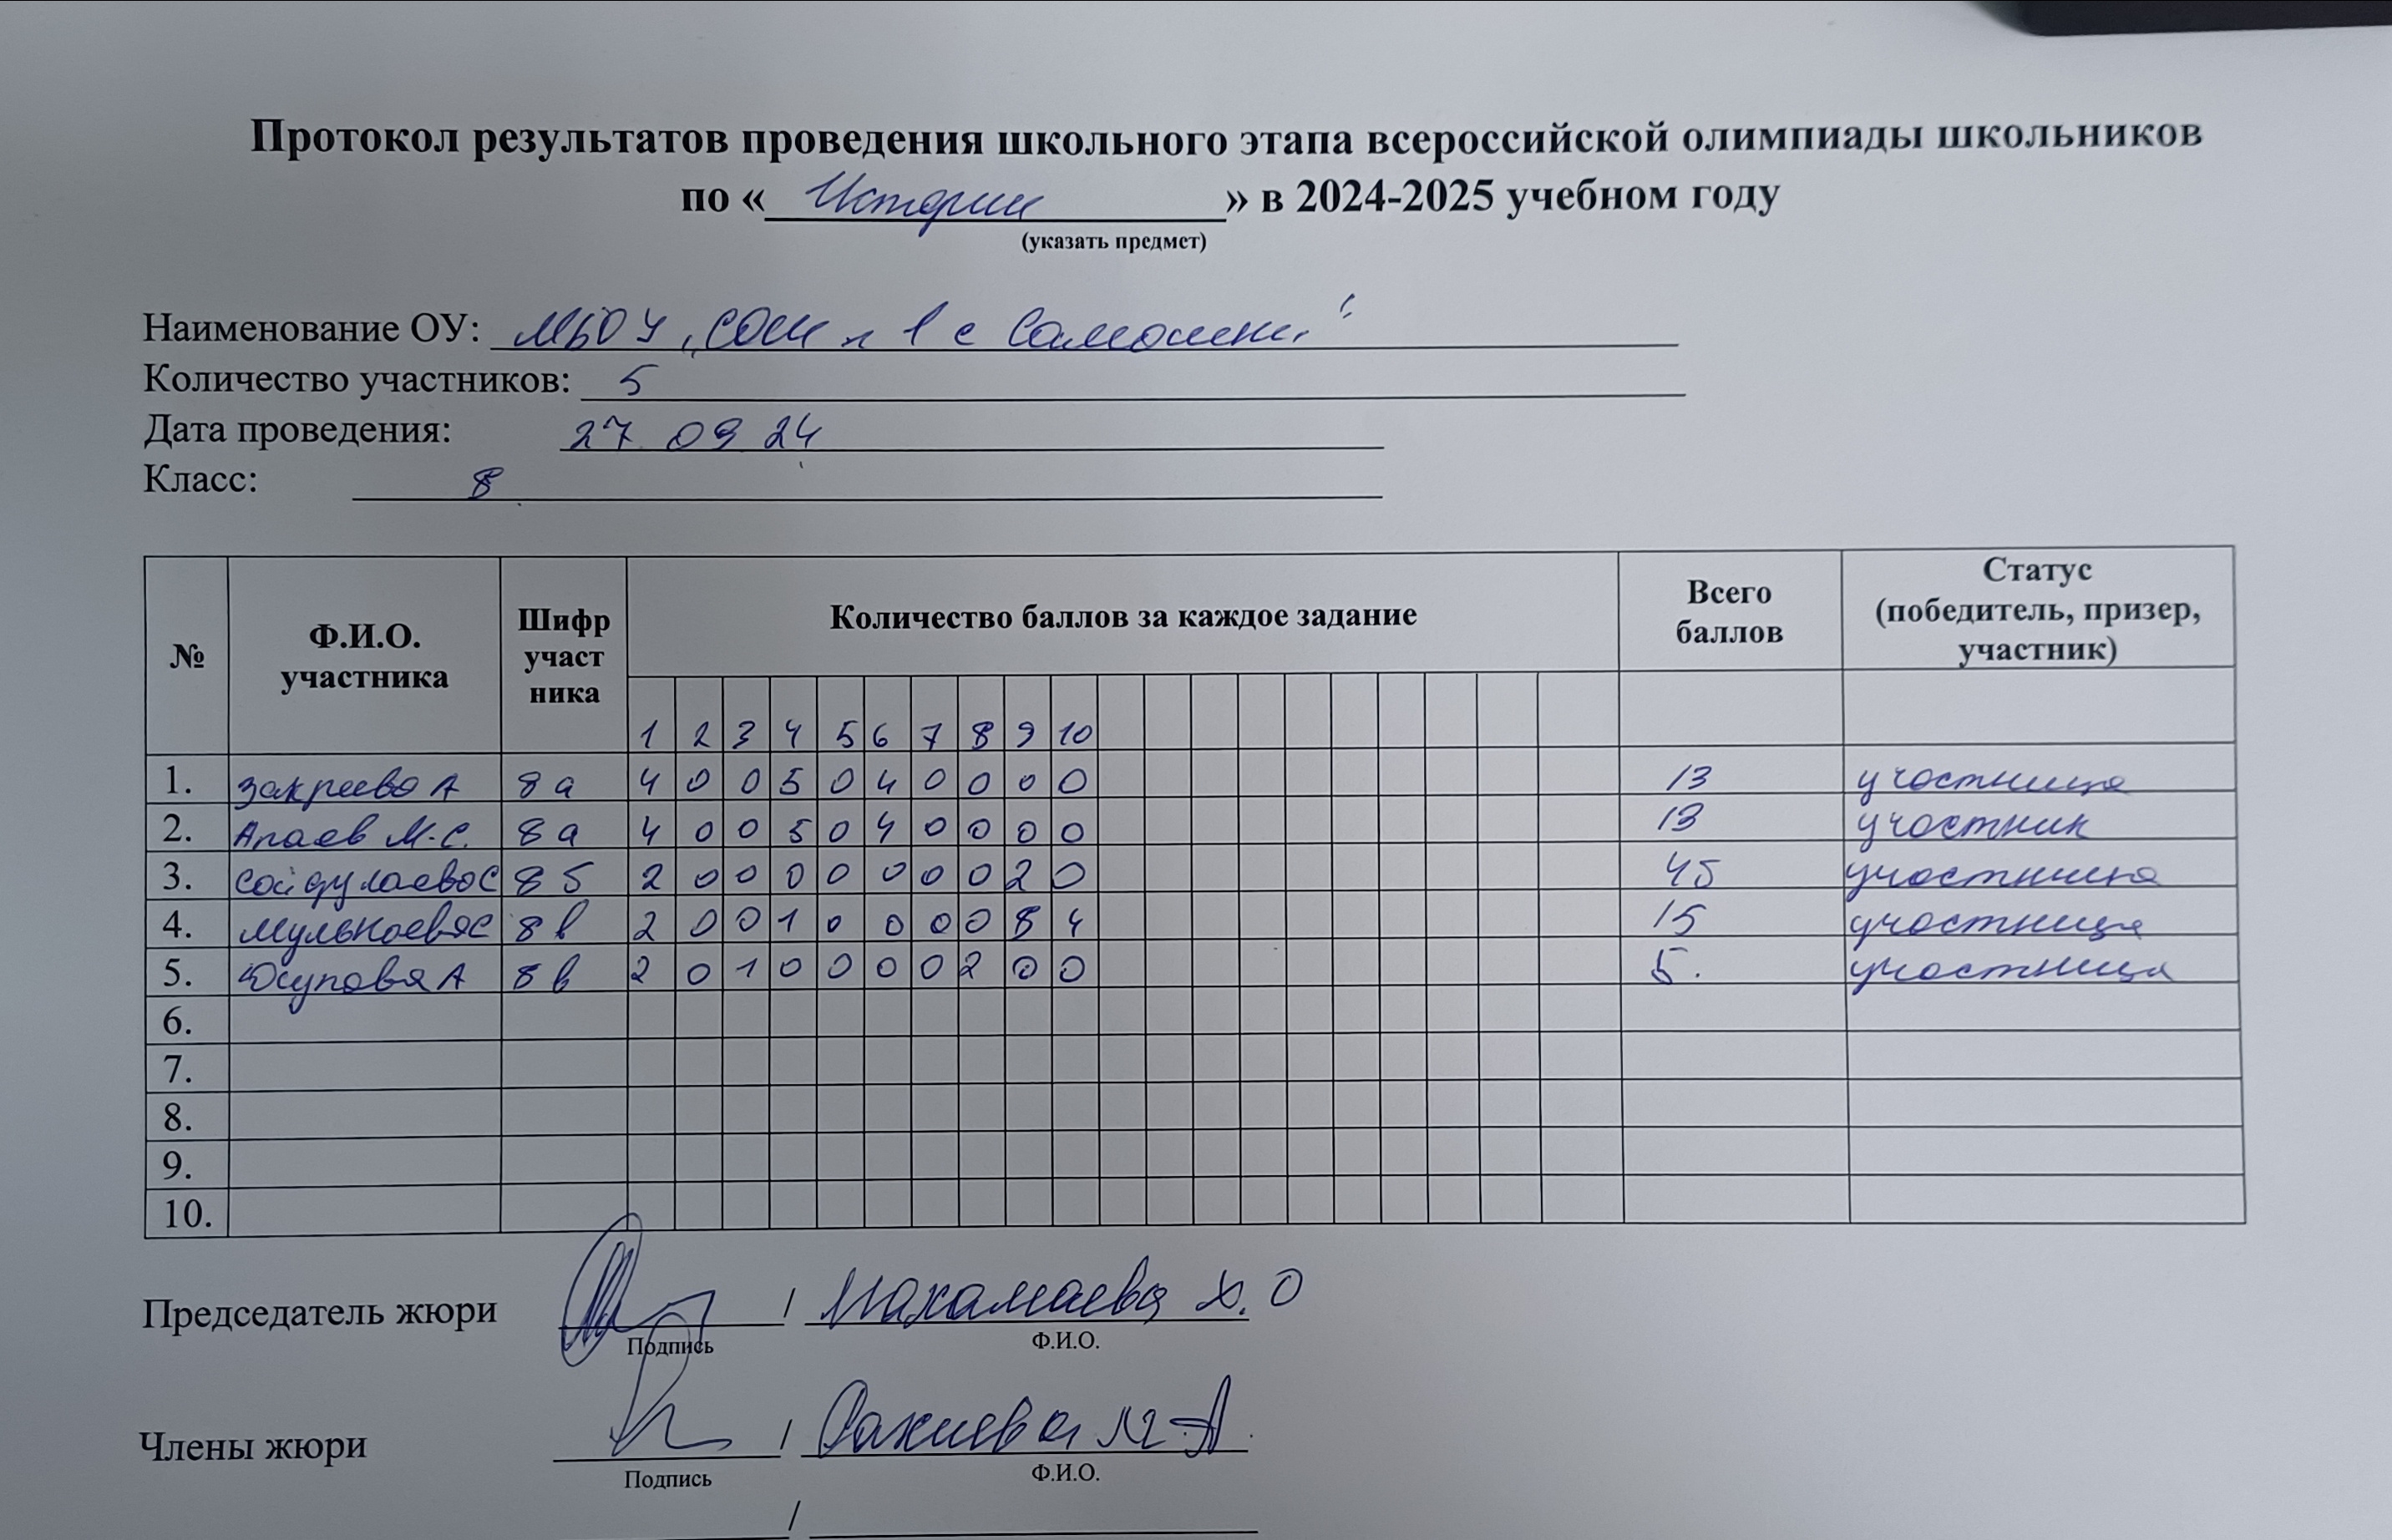 Протокол результатов проведения школьного этапа всероссийской олимпиады школьников
по « Истории » в 2024-2025 учебном году
(указать предмет)
Наименование ОУ: МБОУ „СОШ № 1 с
Количество участников: 5
Дата проведения: 27 09 24
Класс: 8
№ Ф.И.О. участника Шифр участ ника Количество баллов за каждое задание Всего баллов Статус (победитель, призер, участник)
1 2 3 4 5 6 7 8 9 10
1. Закреева А 8а 4 0 0 5 0 4 0 0 0 0 13 участница
2. Апаев М-С. 8а 4 0 0 5 0 4 0 0 0 0 13 участник
3. Сайдулаева С 8б 2 0 0 0 0 0 0 0 2 0 45 участница
4. 8в 2 0 0 1 0 0 0 0 8 4 15 участница
5. Юсупова А 8в 2 0 1 0 0 0 0 2 0 0 5. участница
6.
7.
8.
9.
10.
Председатель жюри / Махамаева Х. О
Подпись Ф.И.О.
Члены жюри / М-А.
Подпись Ф.И.О.
/